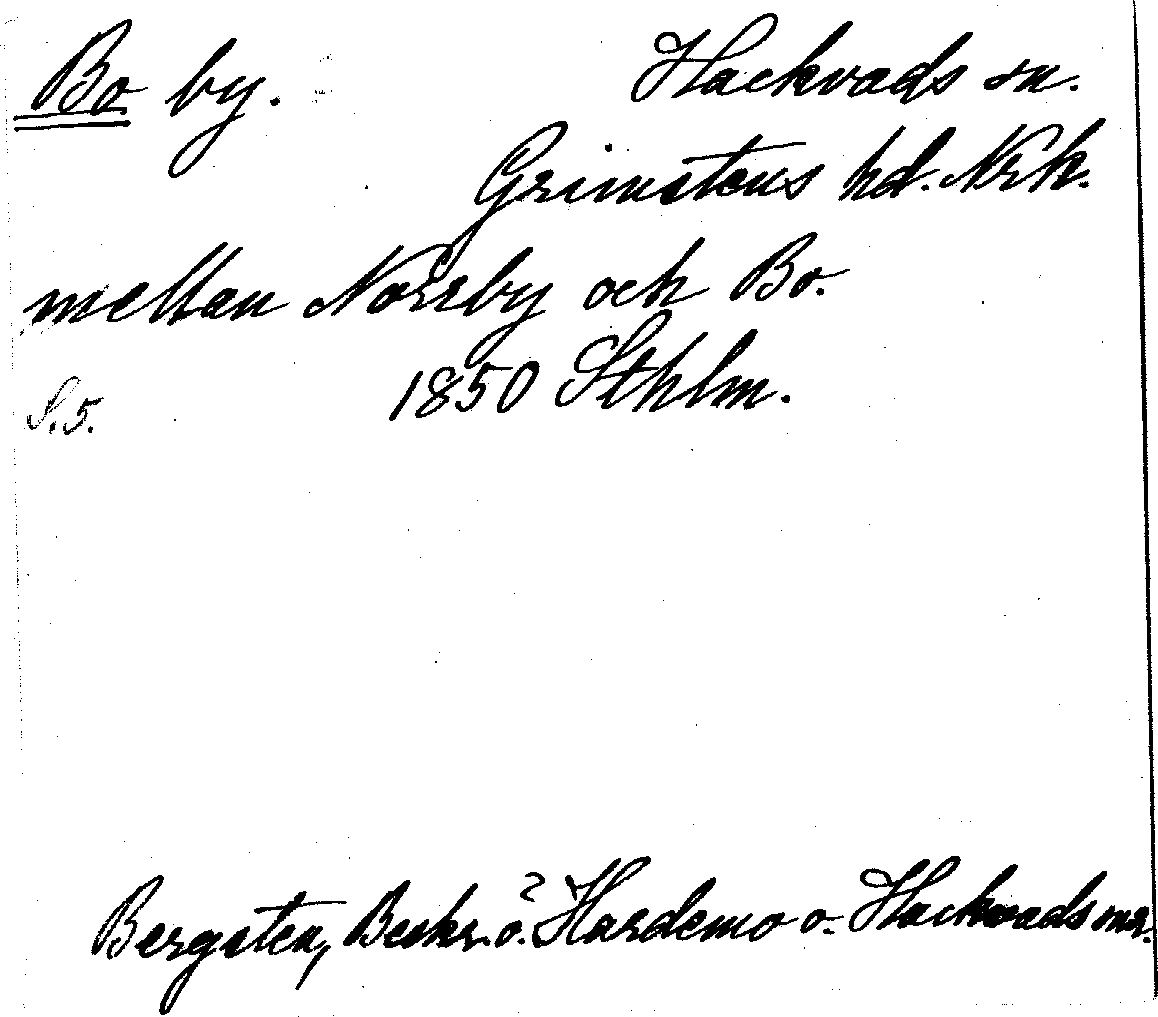 Bo by. Hackvads sn.
Grimstens hd. Nrk.
mellan Norrby och Bo.
S. 5. 1850 Sthlm.
Bergsten, Beskr. ö. Hardemo o. Hackvads snr.